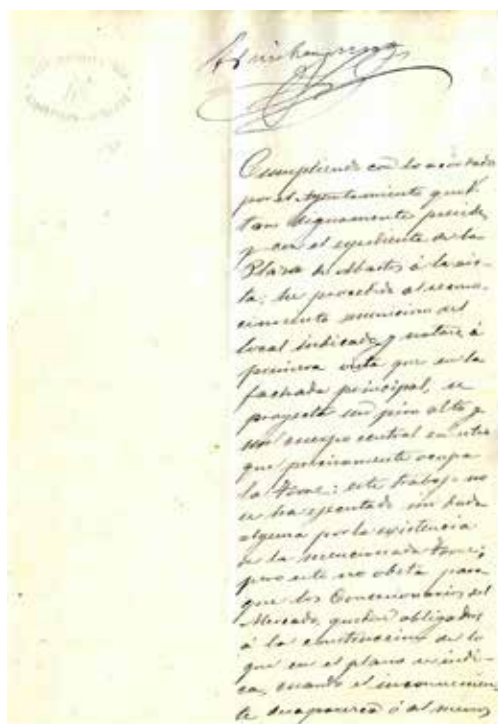 Cumpliendo con lo acordado
por el Ayuntamiento que V.
tan dignamente preside,
y con el espediente de la
Plaza de Abastos á la vis-
ta; he procedido al recono-
cimiento minucioso del
local indicado y notase á
primera vista que en la
fachada principal, se
proyecta un piso alto y
un cuerpo central en sitio
que precisamente ocupa
la Torre; este trabajo no
se ha ejecutado sin duda
alguna por la existencia
de la mencionada Torre;
pero esto no obsta para
que los Concesionarios del
Mercado, queden obligados
á la construccion de lo
que en el plano se indi-
ca, cuando el inconvenien
te desaparezca ó al menos